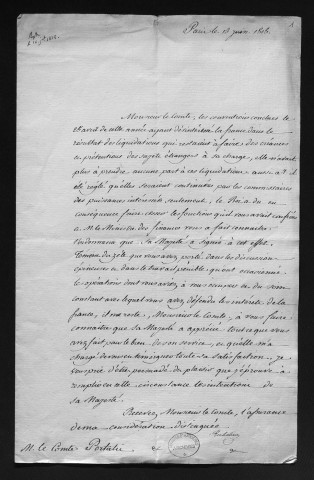 Paris le 13 juin 1818.
Monsieur le Comte, les conventions conclues le
25 avril de cette année ayant désintéressé la france dans le
résultat des liquidations qui restaient à faire, des créances
ou prétentions des sujets étrangers à sa charge, elle n'a dut
plus à prendre, aucune part à ces liquidations aussi a-t-il
été réglé qu'elles seraient continuées par les commissaires
des puissances intéressées, seulement, le Roi a du en
conséquence faire cesser les fonctions qu'il vous avait confiées
M. le Ministre des finances vous a fait connaître
l'ordonnance que Sa Majesté a signée à cet effet.
Témoin du zèle que vous avez porté dans les discussions
épineuses et dans le travail pénible qui ont occasionné
les opérations dont vous aviez à vous occuper et du soin
constant avec lequel vous avez défendu les intérêts de la
france, il me reste, Monsieur le Comte, à vous faire
connaître que Sa Majesté a apprécié tout ce que vous
avez fait pour le bien de son service, et qu'elle m'a
chargé de vous en témoigner toute sa satisfaction. Je
vous prie d'être persuadé du plaisir que j'éprouve à
remplir en cette circonstance les intentions de
Sa Majesté.
Recevez, Monsieur le Comte, l'assurance
de ma considération distinguée
Richelieu
M. le Comte Portalis